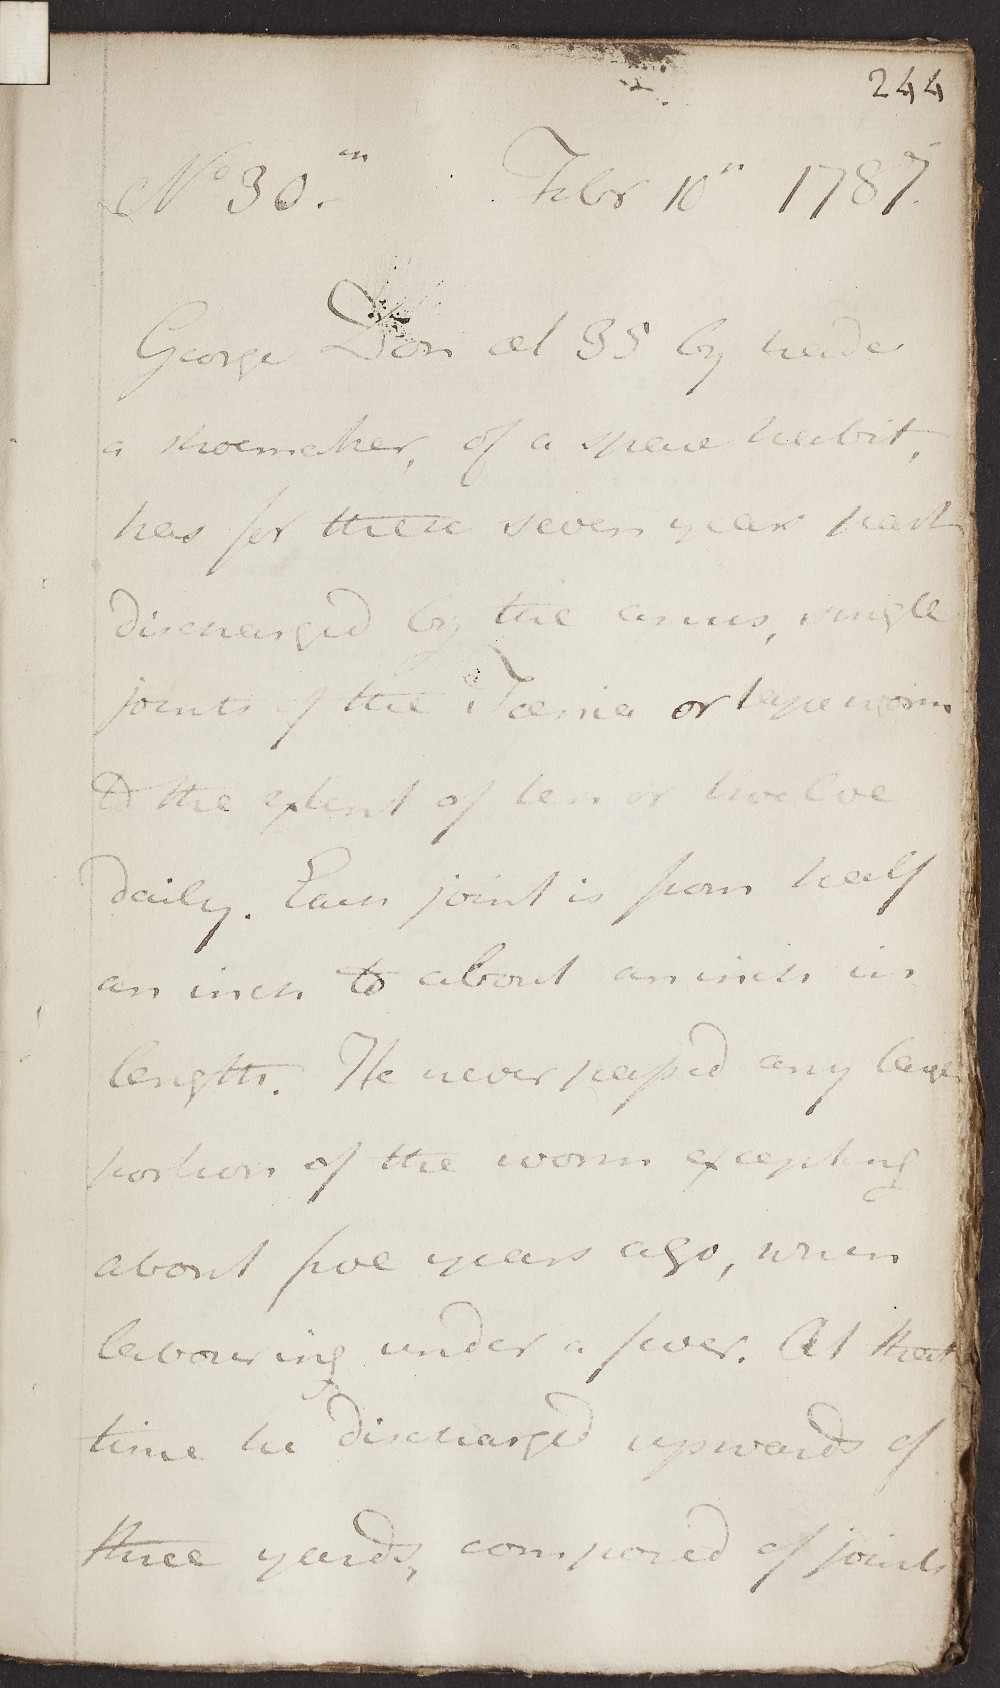 244
No 30.m Febr 10th 1787.
George Don æt 35 by trade
a shoemaker, of a spare habit,
has for these seven years past
discharged by the anus, single
joints of the Tænia or tapeworm
to the extent of ten or twelve
daily. Each joint is from half
an inch to about an inch in
length. He never passed any large
portion of the worm excepting
about five years ago, when
labouring under a fever. At that
time he discharged upwards of
three yards, composed of joints